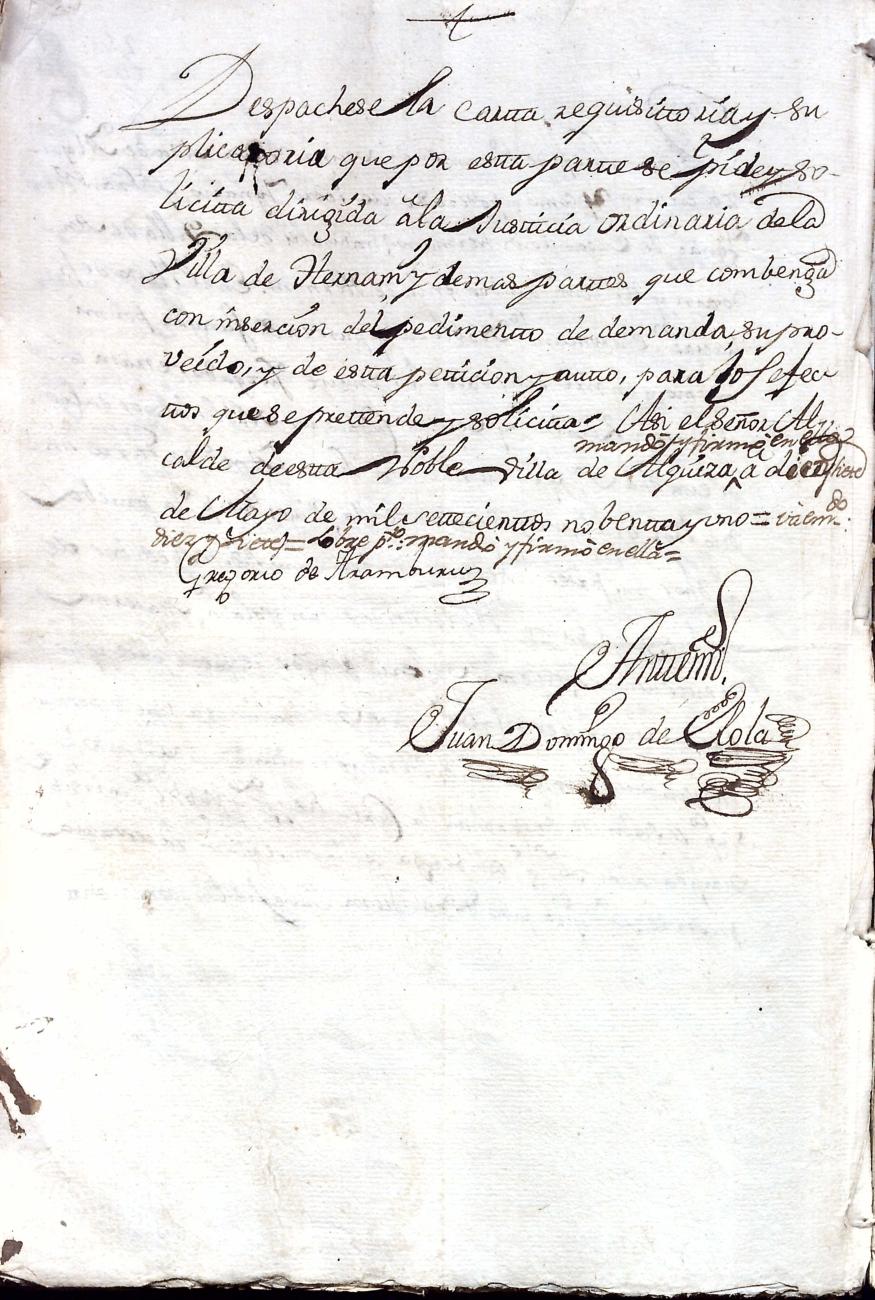 Despachese la Cartta requisittoria y su
plicattoria que por estta partte se pide y so-
licitta dirigida â la Justicia ordinaria de la
Villa de Hernani y demas parttes que combenga
con inserción del pedimentto de demanda, su pro-
veído, y de estta petticion y autto, para los efec-
ttos que se prettende y solicitta = Asi el señor Al-
mandò, y firmò en ella
calde de estta Noble Villa de Aguiza, a diez y siete
de Mayo de mil settecienttos nobentta y vno = va enm.do
diez y siete = sobre p.to mandò y firmò en ella =
Gregorio de Aramburu
Anttemi,
Juan Domingo de Elola